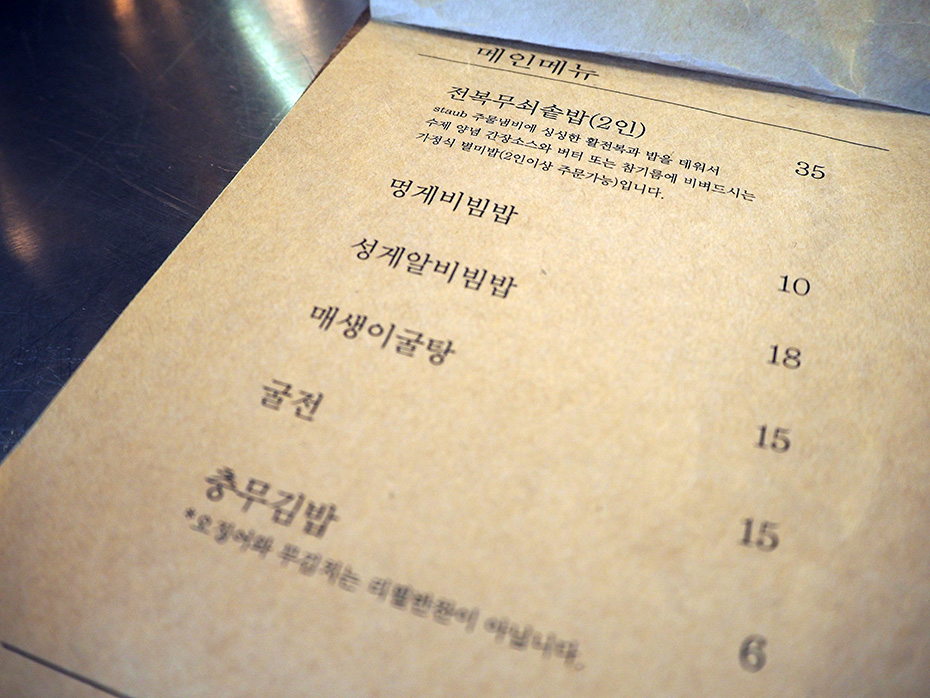 메인메뉴
전복무쇠솥밥(2인) 35
staub 주물냄비에 싱싱한 활전복과 밥을 데워서
수제 양념 간장소스와 버터 또는 참기름에 비벼드시는
가정식 별미밥(2인이상 주문가능)입니다.
멍게비빔밥 10
성게알비빔밥 18
매생이굴탕 15
굴전 15
충무김밥 6
*오징어와 무김치는 리필반찬이 아닙니다.